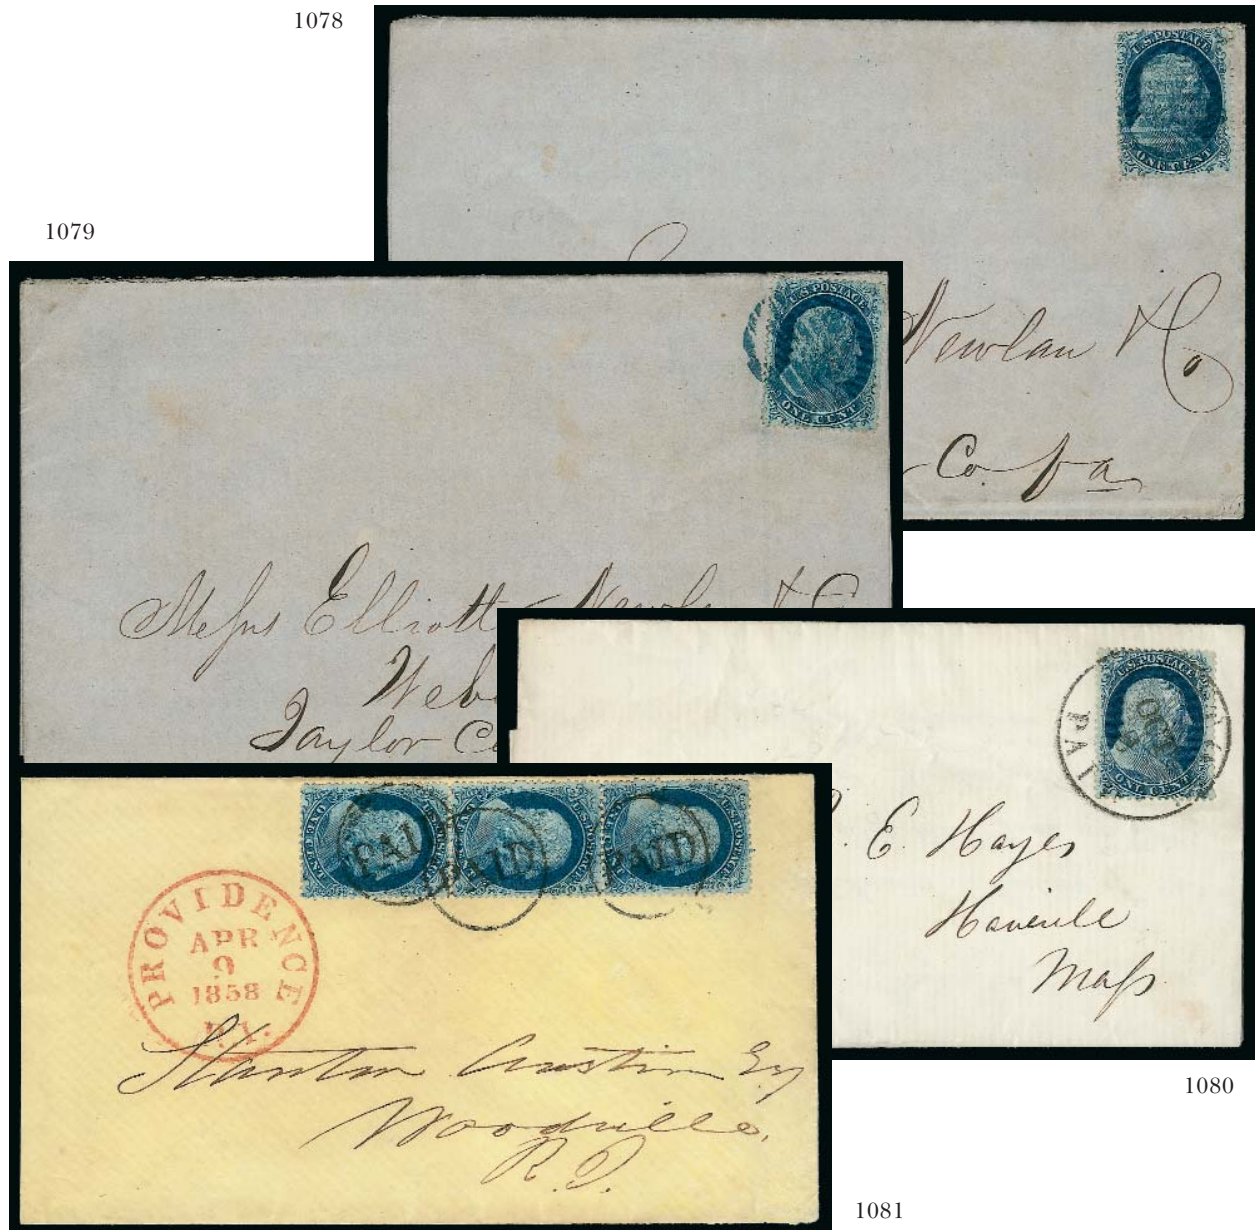 1078
U.S. POSTAGE
ONE CENT
Newlan & Co
Co. Va
1079
U.S. POSTAGE
ONE CENT
Messrs Elliott Newla & C
Web
Taylor Co
U.S. POSTAGE
ONE CENT
OCT
PAI
E. Hayes
Haverill
Mass
1080
U.S. POSTAGE
U.S. POSTAGE
U.S. POSTAGE
PAI
PAID
PAID
PROVIDENCE
APR
9
1858
R.I.
Stanton Austin Esq
Woodville.
R.I.
1081